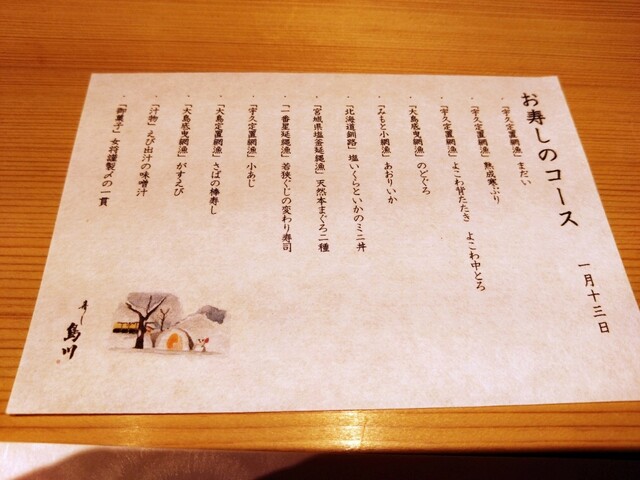 お寿しのコース
一月十三日
・「宇久定置網漁」まだい
・「宇久定置網漁」熟成寒ぶり
・「宇久定置網漁」よこわ背たたき よこわ中とろ
・「大島底曳網漁」のどぐろ
・「みもと小網漁」あおりいか
・「北海道釧路」塩いくらといかのミニ丼
・「宮城県塩釜延縄漁」天然本まぐろ二種
・「一番星延縄漁」若狭ぐじの変わり寿司
・「宇久定置網漁」小あじ
・「大島定置網漁」さばの棒寿し
・「大島底曳網漁」がすえび
・「汁物」えび出汁の味噌汁
・「御菓子」女将謹製〆の一貫
寿し
島川